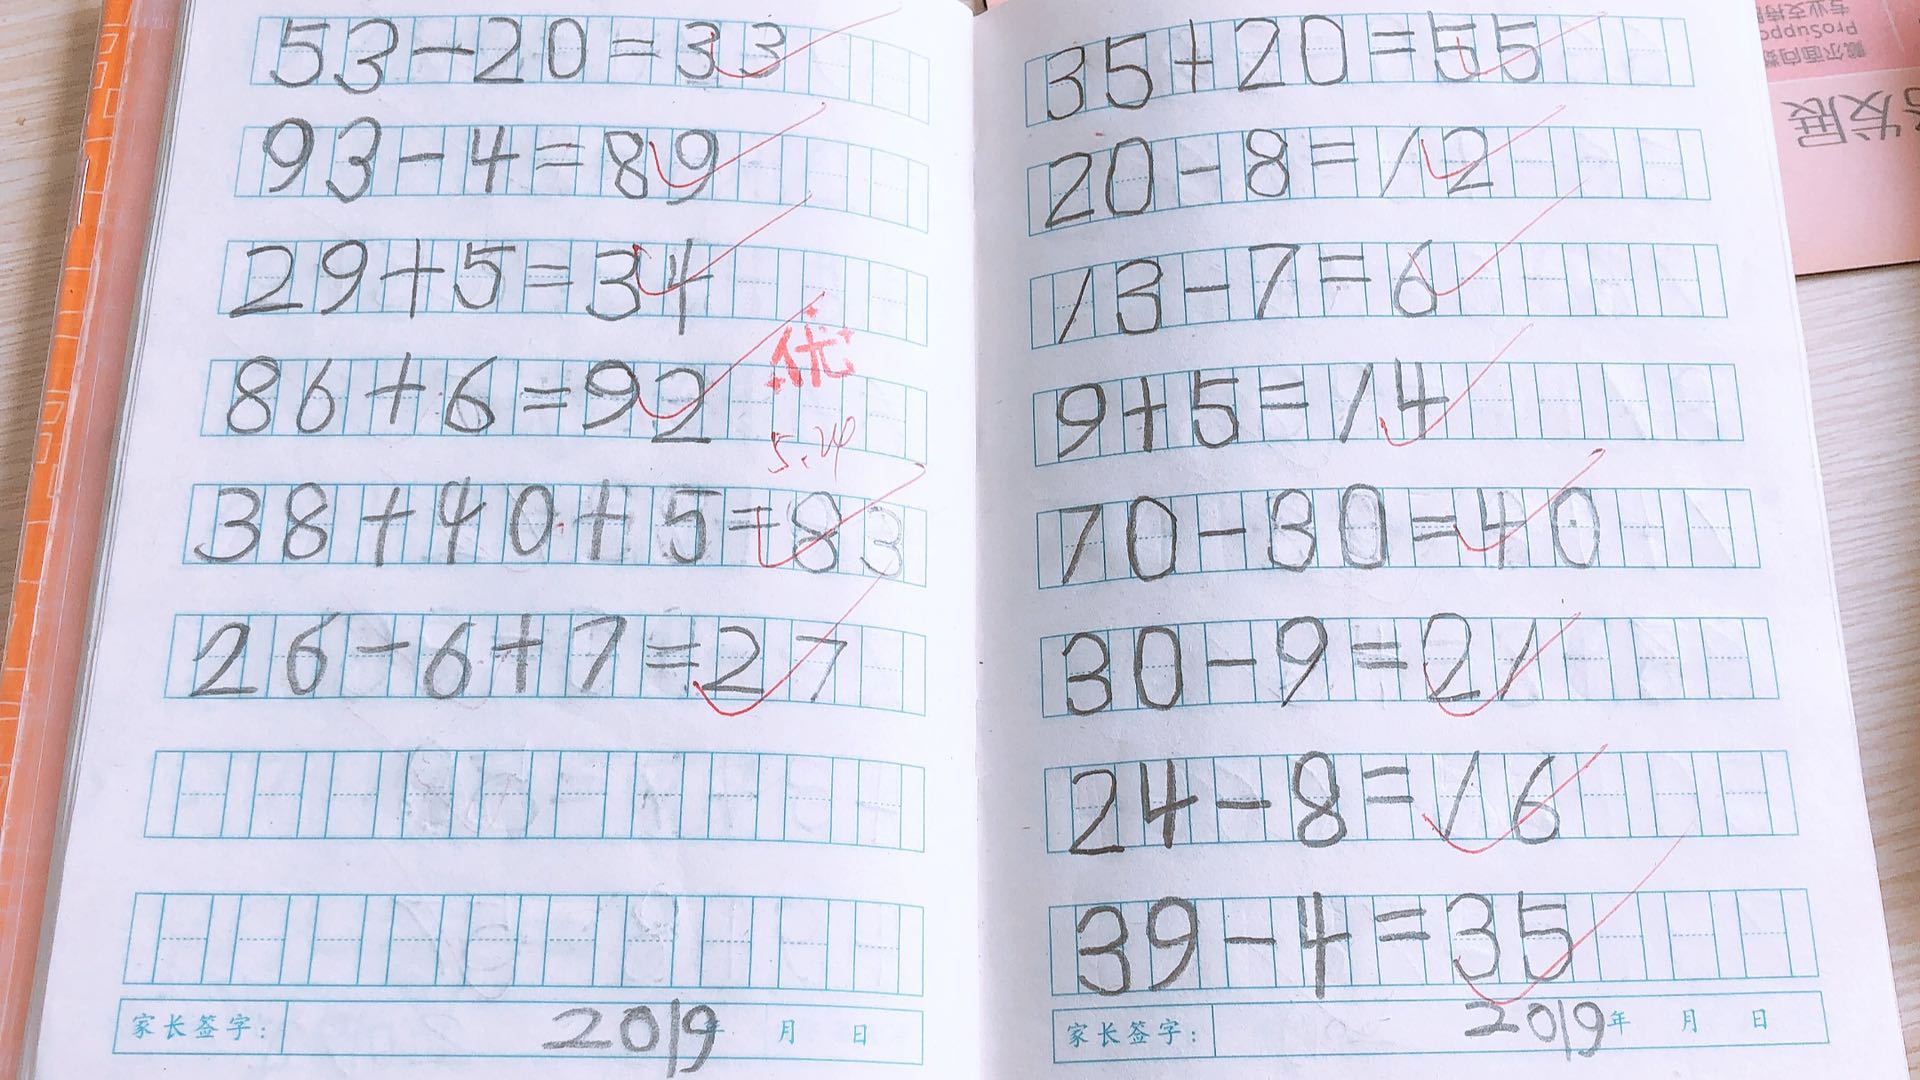 53-20=33
93-4=89
29+5=34
86+6=92
优
5.29
38+40+5=83
26-6+7=27
家长签字:
2019年 月 日
35+20=55
20-8=12
13-7=6
9+5=14
70-30=40
30-9=21
24-8=16
39-4=35
家长签字:
2019年 月 日
专业支持
ProSuppo
发展